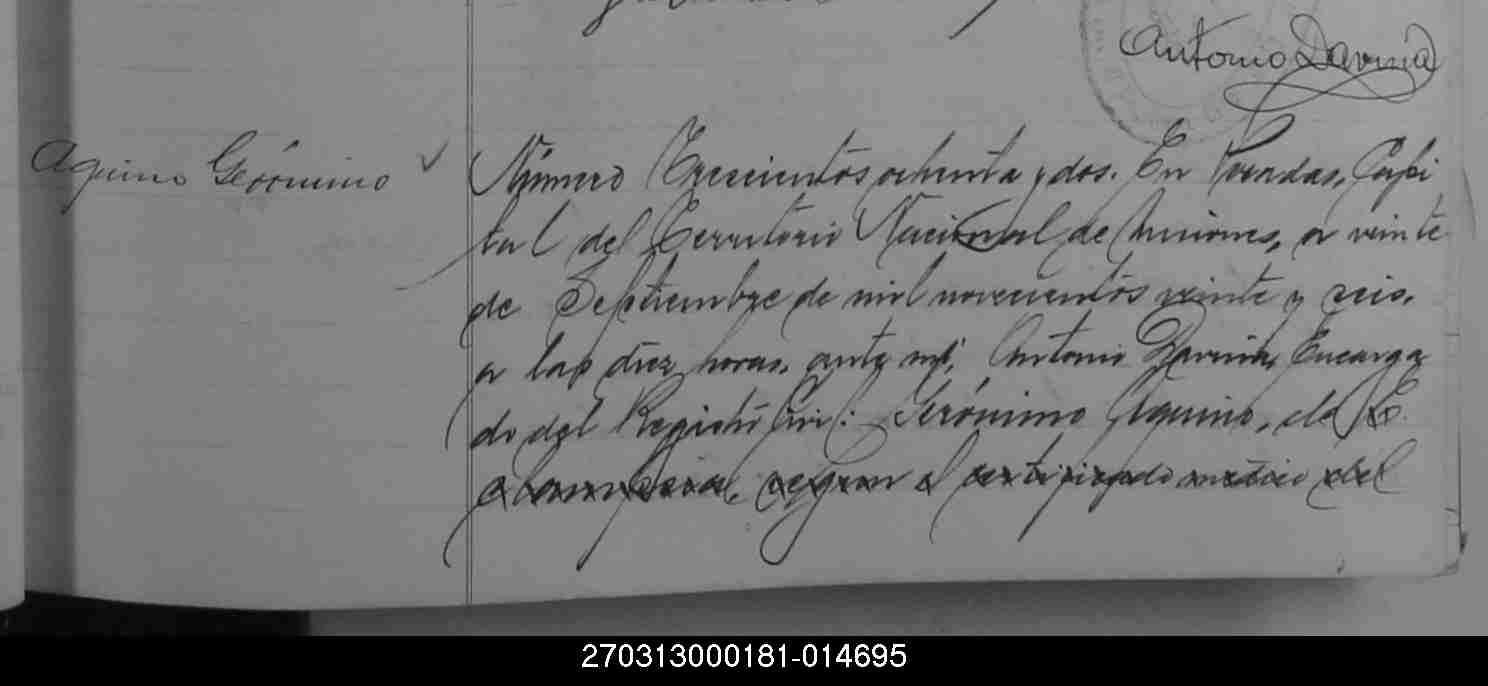 Antonio Zarvia
Aquino Gerónimo
Número Trescientos ochenta y dos. En Posadas, Capi
tal del Territorio Nacional de Misiones, a veinte
de Septiembre de mil novecientos veinte y seis,
a las diez horas, ante mí, Antonio Encarga
do del Registro Civil: Gerónimo Aquino, de
segun el certificado medico del
270313000181-014695